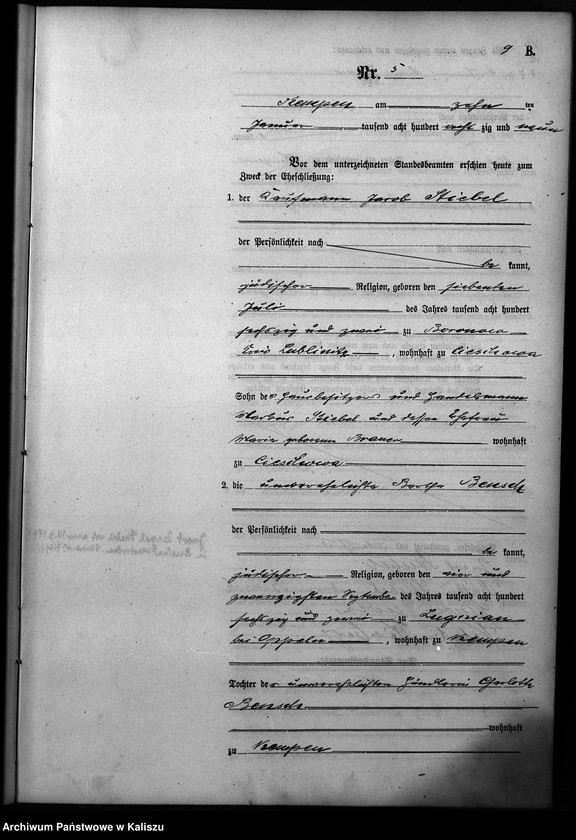 9 B.
Nr. 5
Kempen am zehn ten
Januar tausend acht hundert acht zig und neun
Vor dem unterzeichneten Standesbeamten erschien heute zum
Zweck der Eheschließung:
1. der Kaufmann Jacob Stiebel
der Persönlichkeit nach
be kannt,
jüdischer Religion, geboren den siebenten
Juli des Jahres tausend acht hundert
sechszig und zwei zu Boronow
Kreis Lublinitz, wohnhaft zu Cieschowa
Sohn des Hausbesitzers und Handelsmann
Markus Stiebel und dessen Ehefrau
Marie geborenen Brauer wohnhaft
zu Cieschowa
2. die unverehelichte Bensch
der Persönlichkeit nach
be kannt,
jüdischer Religion, geboren den vier und
zwanzigsten September des Jahres tausend acht hundert
sechszig und zwei zu
bei Oppeln, wohnhaft zu Kempen
Tochter der unverehelichten Händlerin Charlotte
Bensch
wohnhaft
zu Kempen
Archiwum Państwowe w Kaliszu